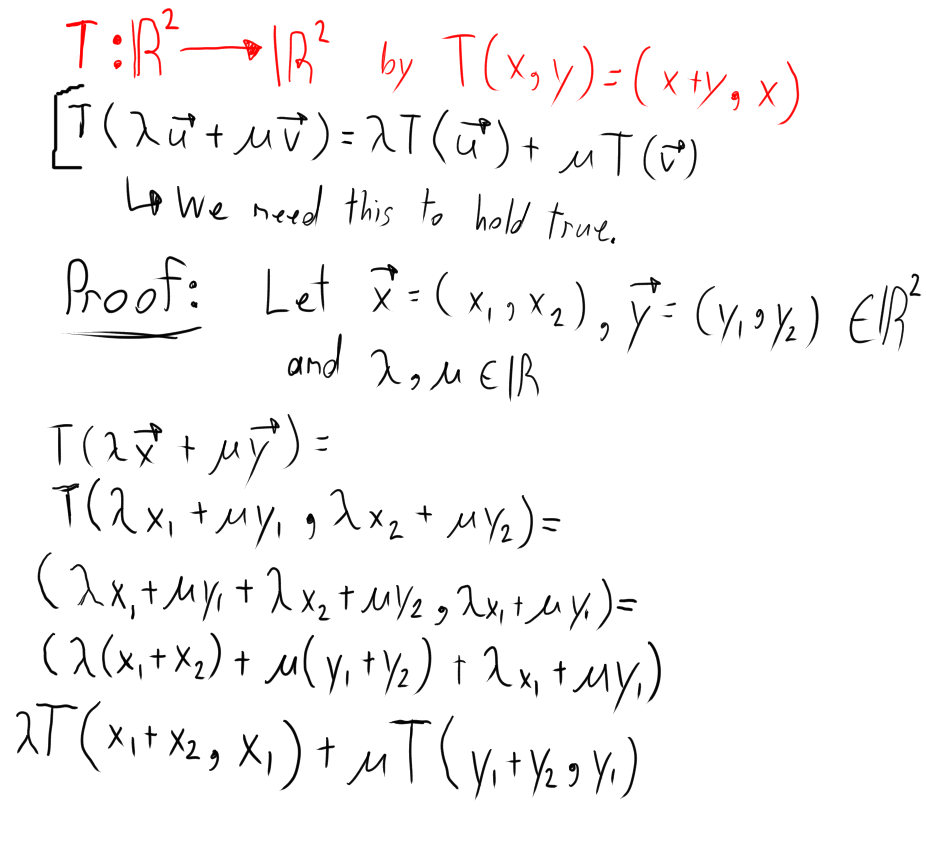 T:ℝ² → ℝ² by T(x,y)=(x+y, x)
[T(λu⃗ + μv⃗) = λT(u⃗) + μT(v⃗)
↳ We need this to hold true.
Proof: Let x⃗ = (x₁, x₂), y⃗ = (y₁, y₂) ∈ ℝ²
and λ, μ ∈ ℝ
T(λx⃗ + μy⃗) =
T(λx₁ + μy₁, λx₂ + μy₂) =
(λx₁ + μy₁ + λx₂ + μy₂, λx₁ + μy₁) =
(λ(x₁+x₂) + μ(y₁+y₂) + λx₁ + μy₁)
λT(x₁+x₂, x₁) + μT(y₁+y₂, y₁)